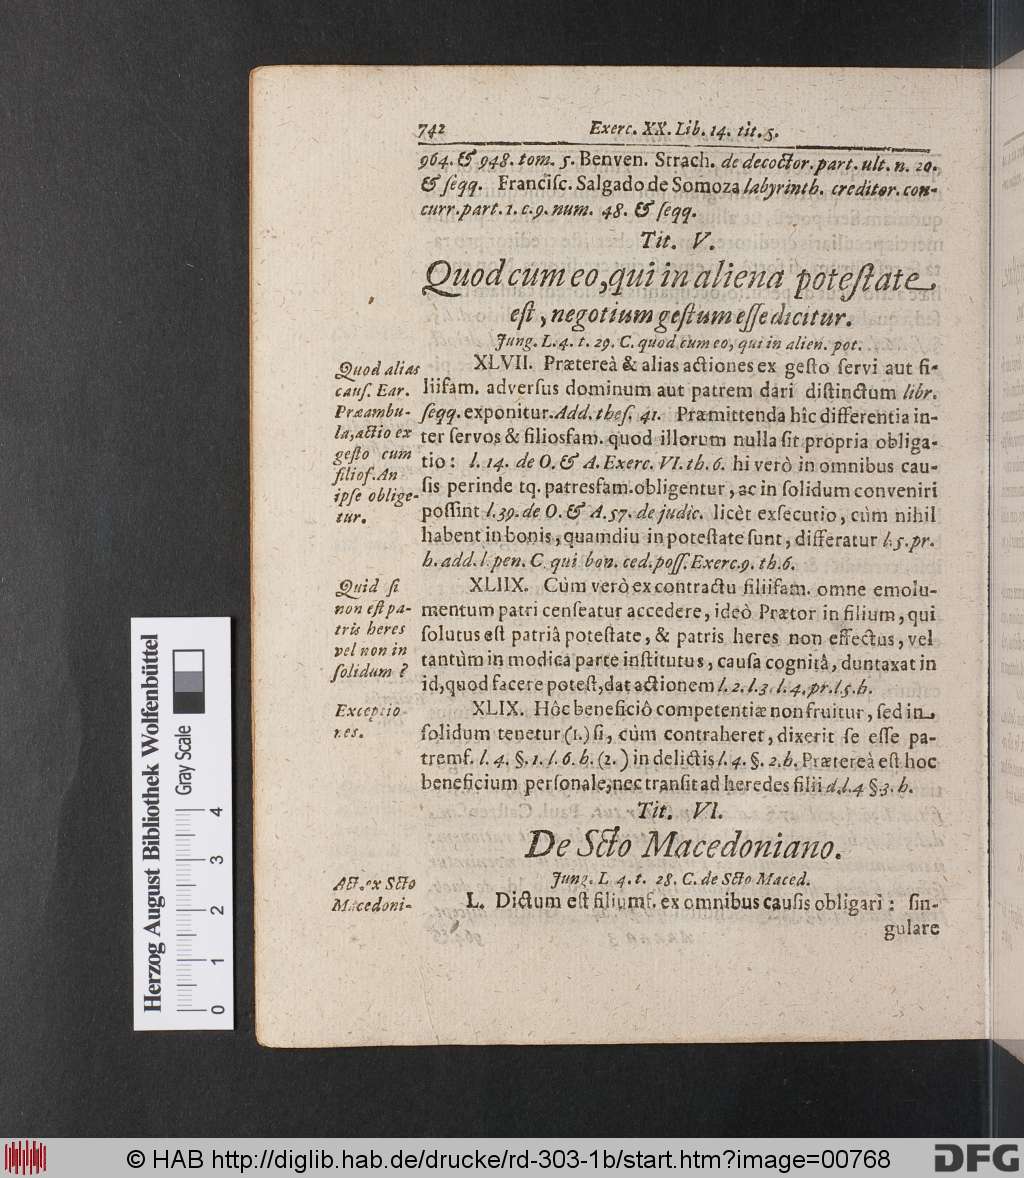 742
Exerc. XX. Lib. 14. tit. 5.
964. & 948. tom. 5. Benven. Strach. de decoctor. part. ult. n. 20.
& ſeqq. Franciſc. Salgado de Somoza labyrinth. creditor. con-
curr. part. 1. c. 9. num. 48. & ſeqq.
Tit. V.
Quod cum eo, qui in aliena poteſtate
eſt, negotium geſtum eſſe dicitur.
Jung. L. 4. t. 29. C. quod cum eo, qui in alien. pot.
Quod alias
cauſ. Ear.
Præambu-
la, actio ex
geſto cum
filioſ. An
ipſe oblige-
tur.
XLVII. Prætereà & alias actiones ex geſto ſervi aut fi-
liifam. adverſus dominum aut patrem dari diſtinctum libr.
ſeqq. exponitur. Add. theſ. 41. Præmittenda hîc differentia in-
ter ſervos & filiosfam. quod illorum nulla ſit propria obliga-
tio: l. 14. de O. & A. Exerc. VI. th. 6. hi verò in omnibus cau-
ſis perinde tq. patresfam. obligentur, ac in ſolidum conveniri
poſſint l. 39. de O. & A. 57. de judic. licèt exſecutio, cùm nihil
habent in bonis, quamdiu in poteſtate ſunt, differatur l. 5. pr.
h. add. l. pen. C. qui bon. ced. poſſ. Exerc. 9. th. 6.
Quid ſi
non eſt pa-
tris heres
vel non in
ſolidum?
XLIIX. Cùm verò ex contractu filiifam. omne emolu-
mentum patri cenſeatur accedere, ideò Prætor in filium, qui
ſolutus eſt patriâ poteſtate, & patris heres non effectus, vel
tantùm in modica parte inſtitutus, cauſa cognitâ, duntaxat in
id, quod facere poteſt, dat actionem l. 2. l. 3. l. 4. pr. l. 5. h.
Exceptio-
nes.
XLIX. Hôc beneficiô competentiæ non fruitur, ſed in
ſolidum tenetur (1.) ſi, cùm contraheret, dixerit ſe eſſe pa-
tremf. l. 4. §. 1. l. 6. h. (2.) in delictis l. 4. §. 2. h. Prætereà eſt hoc
beneficium perſonale, nec tranſit ad heredes filii d. l. 4 §. 3. h.
Tit. VI.
De Scto Macedoniano.
Jung. L. 4. t. 28. C. de Scto Maced.
Act. ex Scto
Macedoni-
L. Dictum eſt filiumf. ex omnibus cauſis obligari: ſin-
gulare
Herzog August Bibliothek Wolfenbüttel
Gray Scale
0 1 2 3 4
© HAB http://diglib.hab.de/drucke/rd-303-1b/start.htm?image=00768
DFG